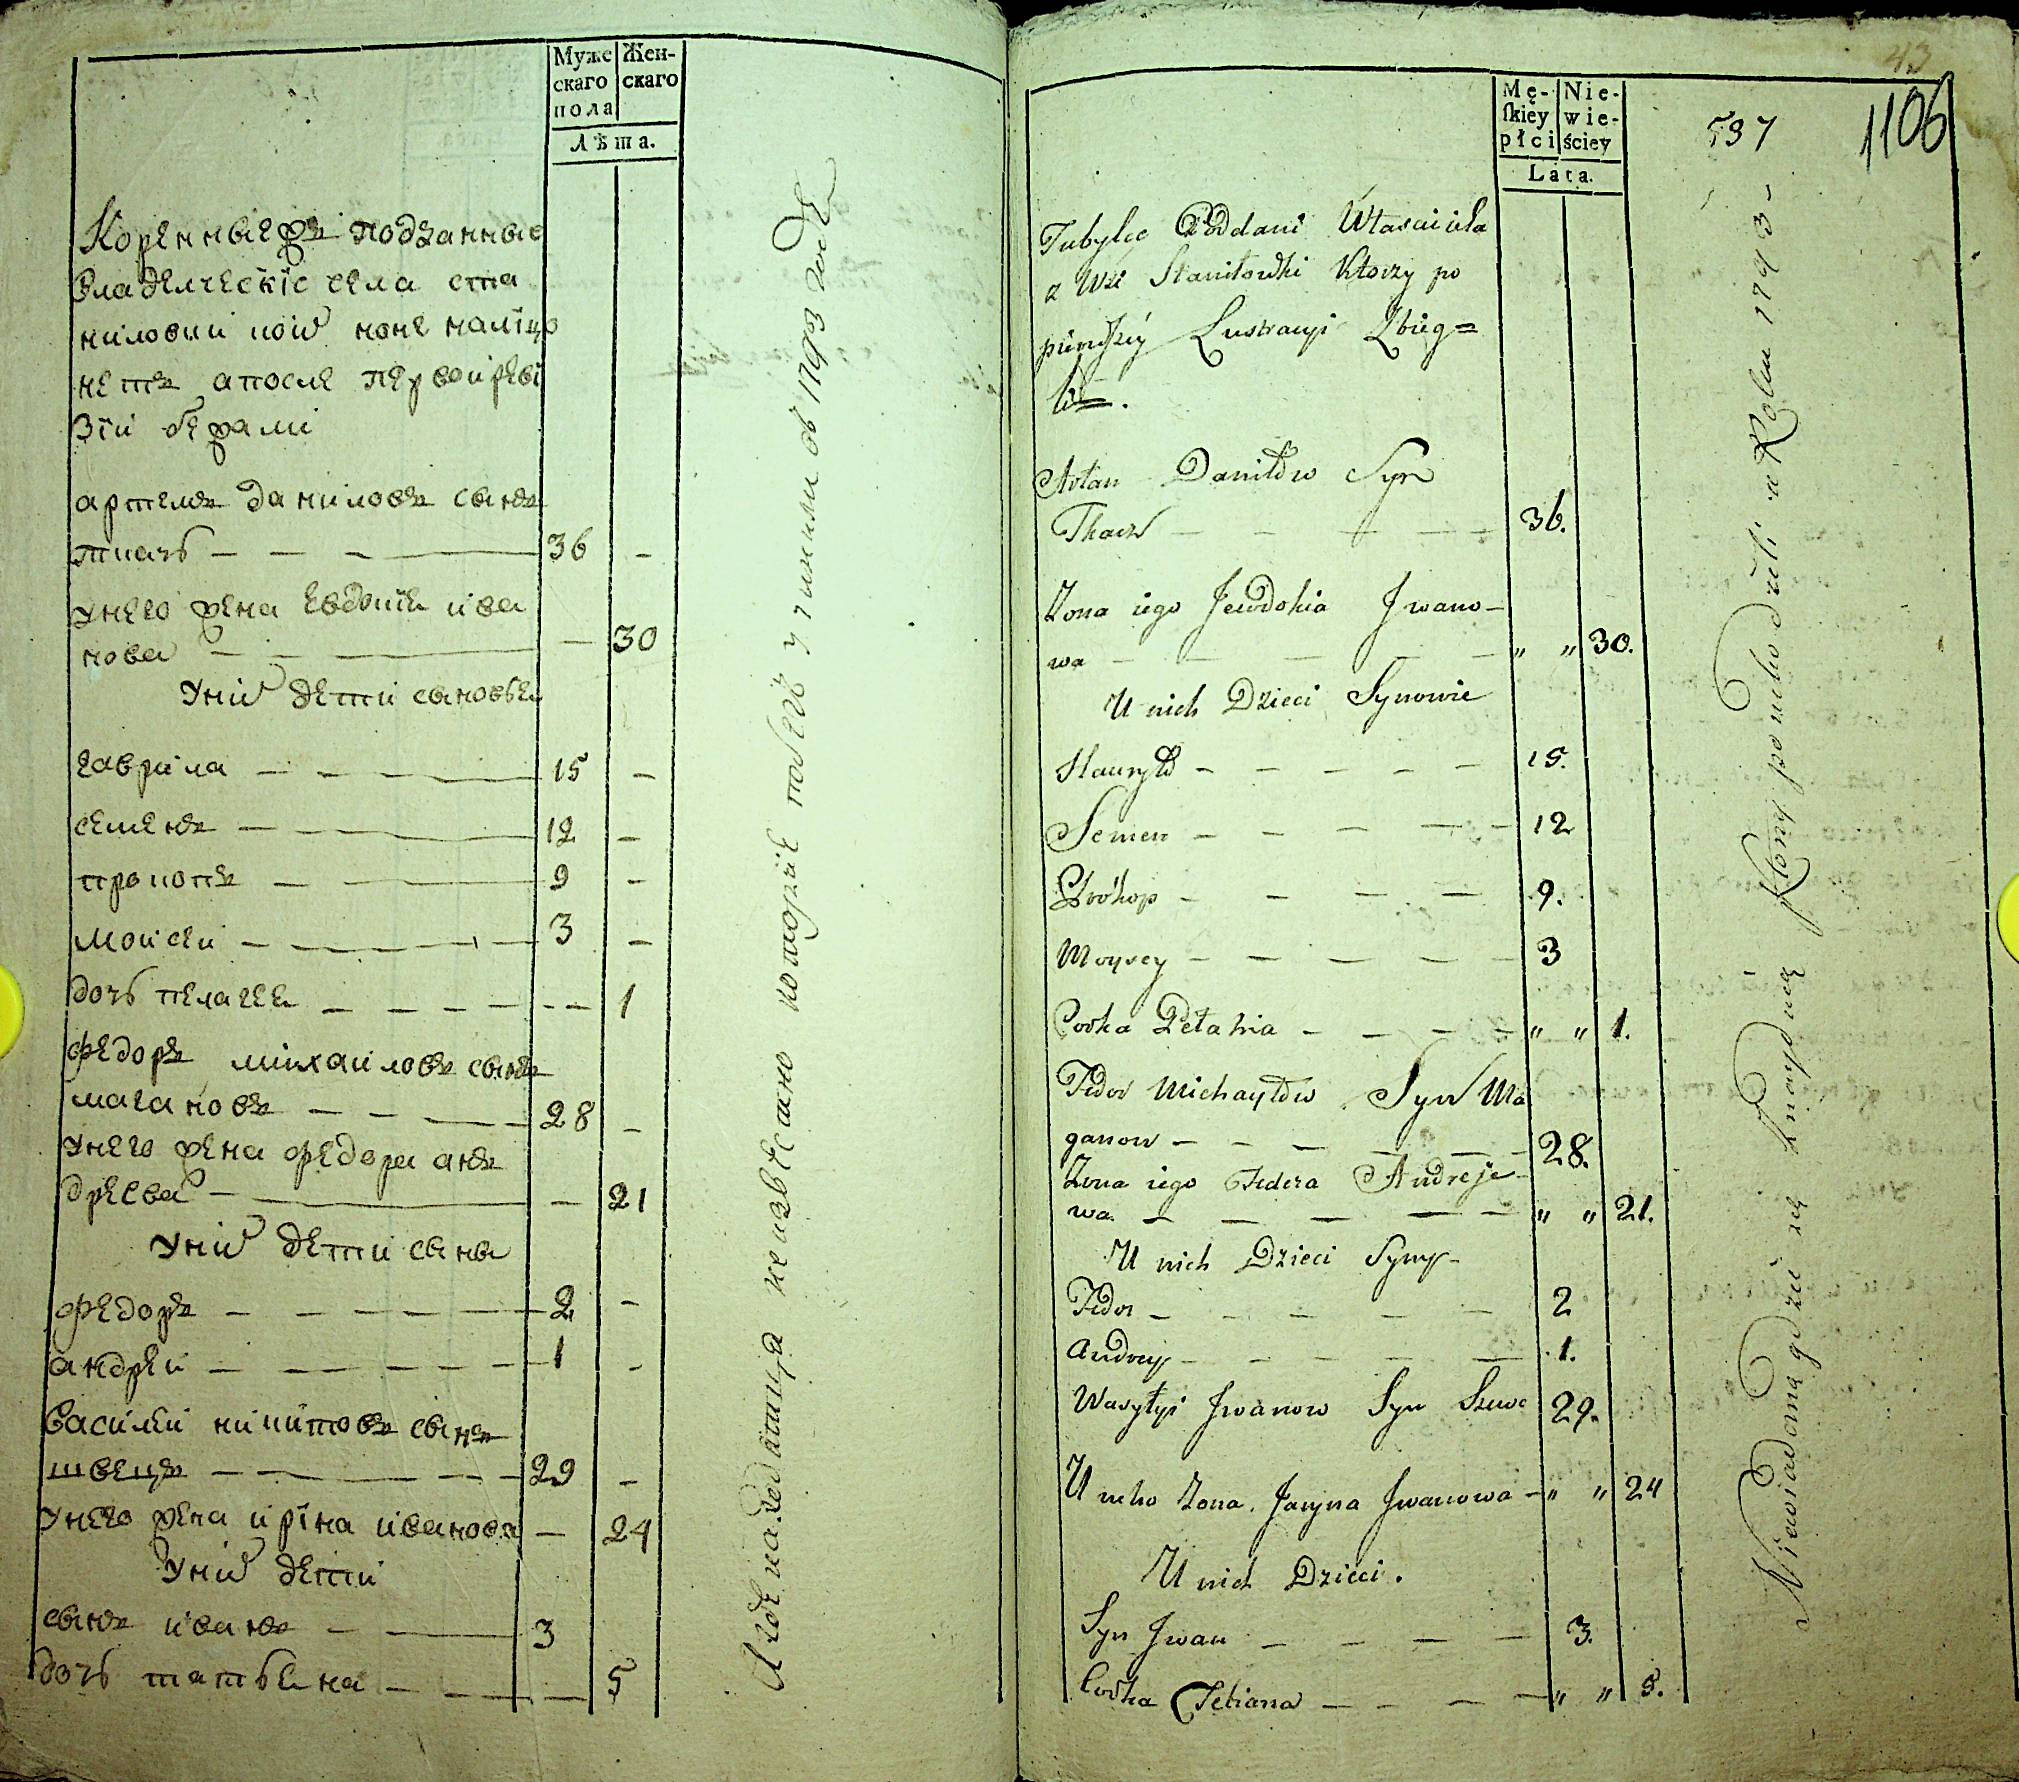 Муже
скаго
пола
Жен-
скаго
Лѣта.
Коренныежъ подданные
владелческiе села ста
ниловки коих ноне налицо
нетъ апосле первои реви
зiи бежали
артемъ даниловъ сынъ
ткачь — — — — 36 —
унего жена Евдокiя ива
нова — — — — 30
Уних дети сыновья
гаврила — — — — 15 —
семенъ — — — 12 —
прокопъ — — 9 —
моисеи — — — — 3 —
дочь пелагея — — — — — 1
федоръ михаиловъ сынъ
магановъ — — — 28 —
унего жена федора анъ
дреева — — — 21
Уних дети сыны
федоръ — — — — — 2 —
андреи — — — — — 1 —
Василеи никитовъ сынъ
швецъ — — — — — 29 —
унего жена ирiна иванова — 24
Уних дети
сынъ иванъ — — 3
дочь татьяна — — — — 5
Агде находятца неизвѣсано которiе побегѣ учинили въ 1793 годѣ
43
Mę-
ſkiey
płci
Nie-
wie-
ściey
Lata.
537
1106
Tubylce Poddani Własciciela
z Wsi Staniłowki Ktorzy po
pierwszey Lustracyi Zbieg=
li=.
Artem Daniłow Syn
Tkacz — — — — — 36.
Zona iego Jewdokia Jwano-
wa — — — — — " " 30.
U nich Dzieci Synowie
Hauryło — — — — — 15.
Semen — — — — — 12
Prokop — — — — 9.
Moysey — — — — — 3
Corka Pełahia — — — — " " 1.
Fedor Michayłow Syn Ma
ganow — — — — — 28.
Zona iego Fedora Andreje-
wa. — — — — — " " 21.
U nich Dzieci Syny-
Fedor — — — — — 2
Andrey — — — — — 1.
Wasylyi Jwanow Syn Szwe 29.
U neho Zona Jaryna Jwanowa — " " 24
U nich Dzieci.
Syn Jwan — — — — 3.
Corka Tetiana — — — — " " 5.
Niewiadama gdzie się znayduią Ktory pouchodzili w Roku 1793-